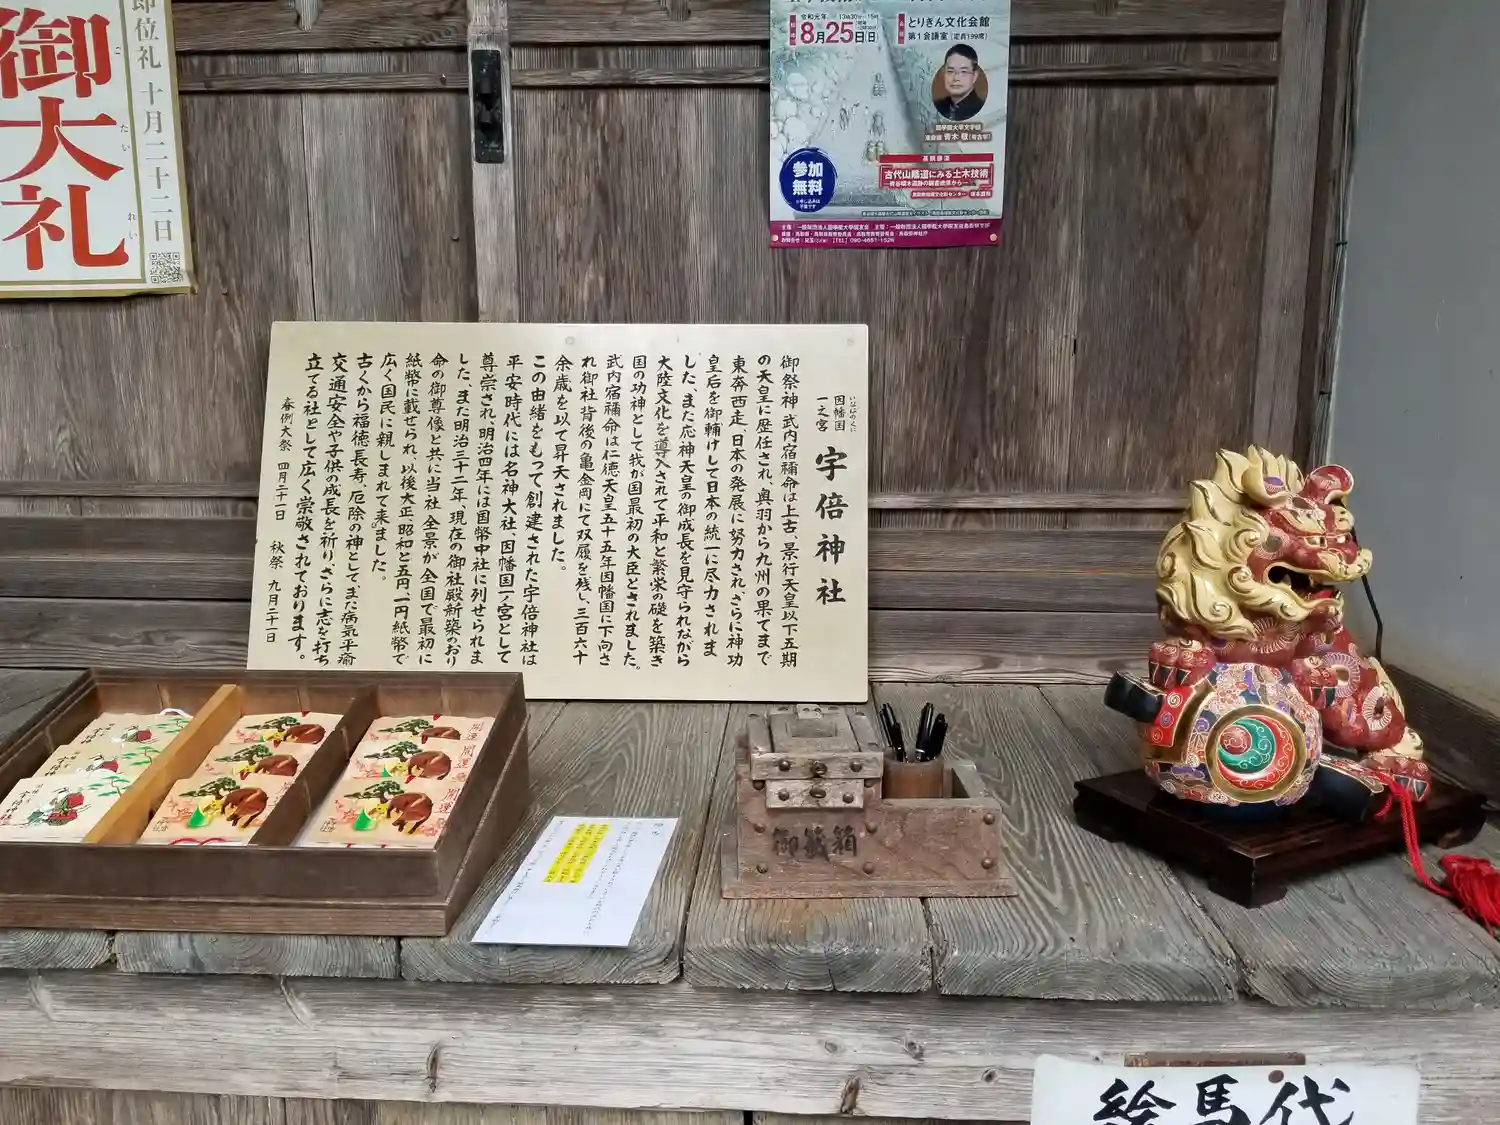 即位礼 十月二十二日
御大礼
ご
たい
れい
令和元年
8月25日(日)
13時30分
とりぎん文化会館
第1会議室 (定員199席)
國學院大學文学部
青木 敬
参加
無料
基調講演
古代山陰道にみる土木技術
いなばのくに
因幡国
一之宮
宇倍神社
御祭神 武内宿禰命は上古、景行天皇以下五期
の天皇に歴任され、奥羽から九州の果てまで
東奔西走、日本の発展に努力され、さらに神功
皇后を御輔けして日本の統一に尽力されま
した、また応神天皇の御成長を見守られながら
大陸文化を導入されて平和と繁栄の礎を築き
国の功神として我が国最初の大臣とされました。
武内宿禰命は仁徳天皇五十五年因幡国に下向さ
れ御社背後の亀金岡にて双履を残し、三百六十
余歳を以て昇天されました。
この由緒をもって創建された宇倍神社は
平安時代には名神大社、因幡国一ノ宮として
尊崇され、明治四年には国幣中社に列せられま
した、また明治三十二年、現在の御社殿新築のおり
命の御尊像と共に当社全景が全国で最初に
紙幣に載せられ、以後大正、昭和と五円、一円紙幣で
広く国民に親しまれて来ました。
古くから福徳長寿、厄除の神として、また病気平癒
交通安全や子供の成長を祈り、さらに志を打ち
立てる社として広く崇敬されております。
春例大祭 四月二十一日 秋祭 九月二十一日
開運
開運
開運
御籤箱
絵馬代